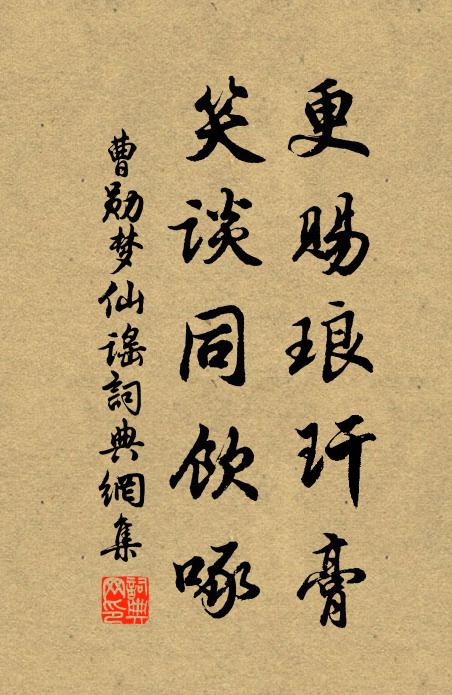 更赐琅玕膏
笑谈同饮啄
曹勋梦仙谣詞典網集
詞典
网印